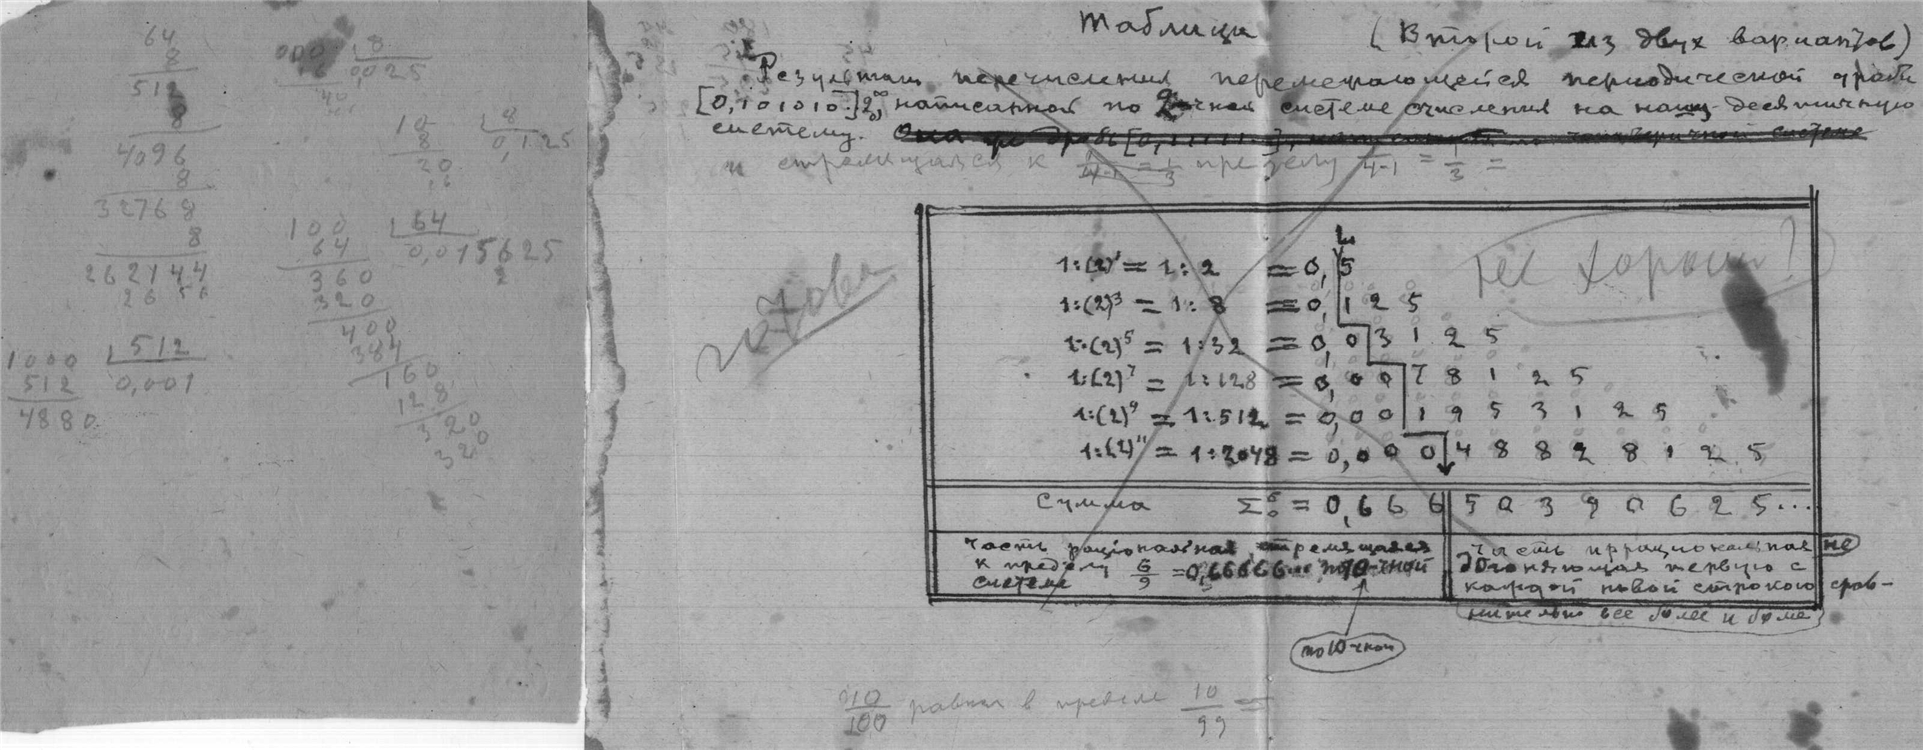 64
8
512
8
4096
8
32768
8
262144
1000 512
512 0,001
4880
000 8
0,025
40
10 8
8 0,125
20
100 64
64 0,015625
360 2
320
400
384
160
128
320
320
Таблица (Второй из двух вариантов)
Результат перечисления перемежающейся периодической дроби
[0,101010..]2, написанной по 2-чной системе счисления на нашу десятичную
систему.
и стремящаяся к пределу 1/4-1 = 1/3 =
готова
1:(2)¹ = 1:2 = 0,5
1:(2)³ = 1:8 = 0,125
1:(2)⁵ = 1:32 = 0,03125
1:(2)⁷ = 1:128 = 0,0078125
1:(2)⁹ = 1:512 = 0,001953125
1:(2)¹¹ = 1:2048 = 0,00048828125
Сумма Σ⁶₀ = 0,66650390625...
Часть раціональная стремящаяся
к пределу 6/9 = 0,66666... по 10-чной
системе
Часть иррациональная не
догоняющая первую с
каждой новой строкою срав-
нительно все более и более
по 10 чной
10/100 равна в пределе 10/99 =